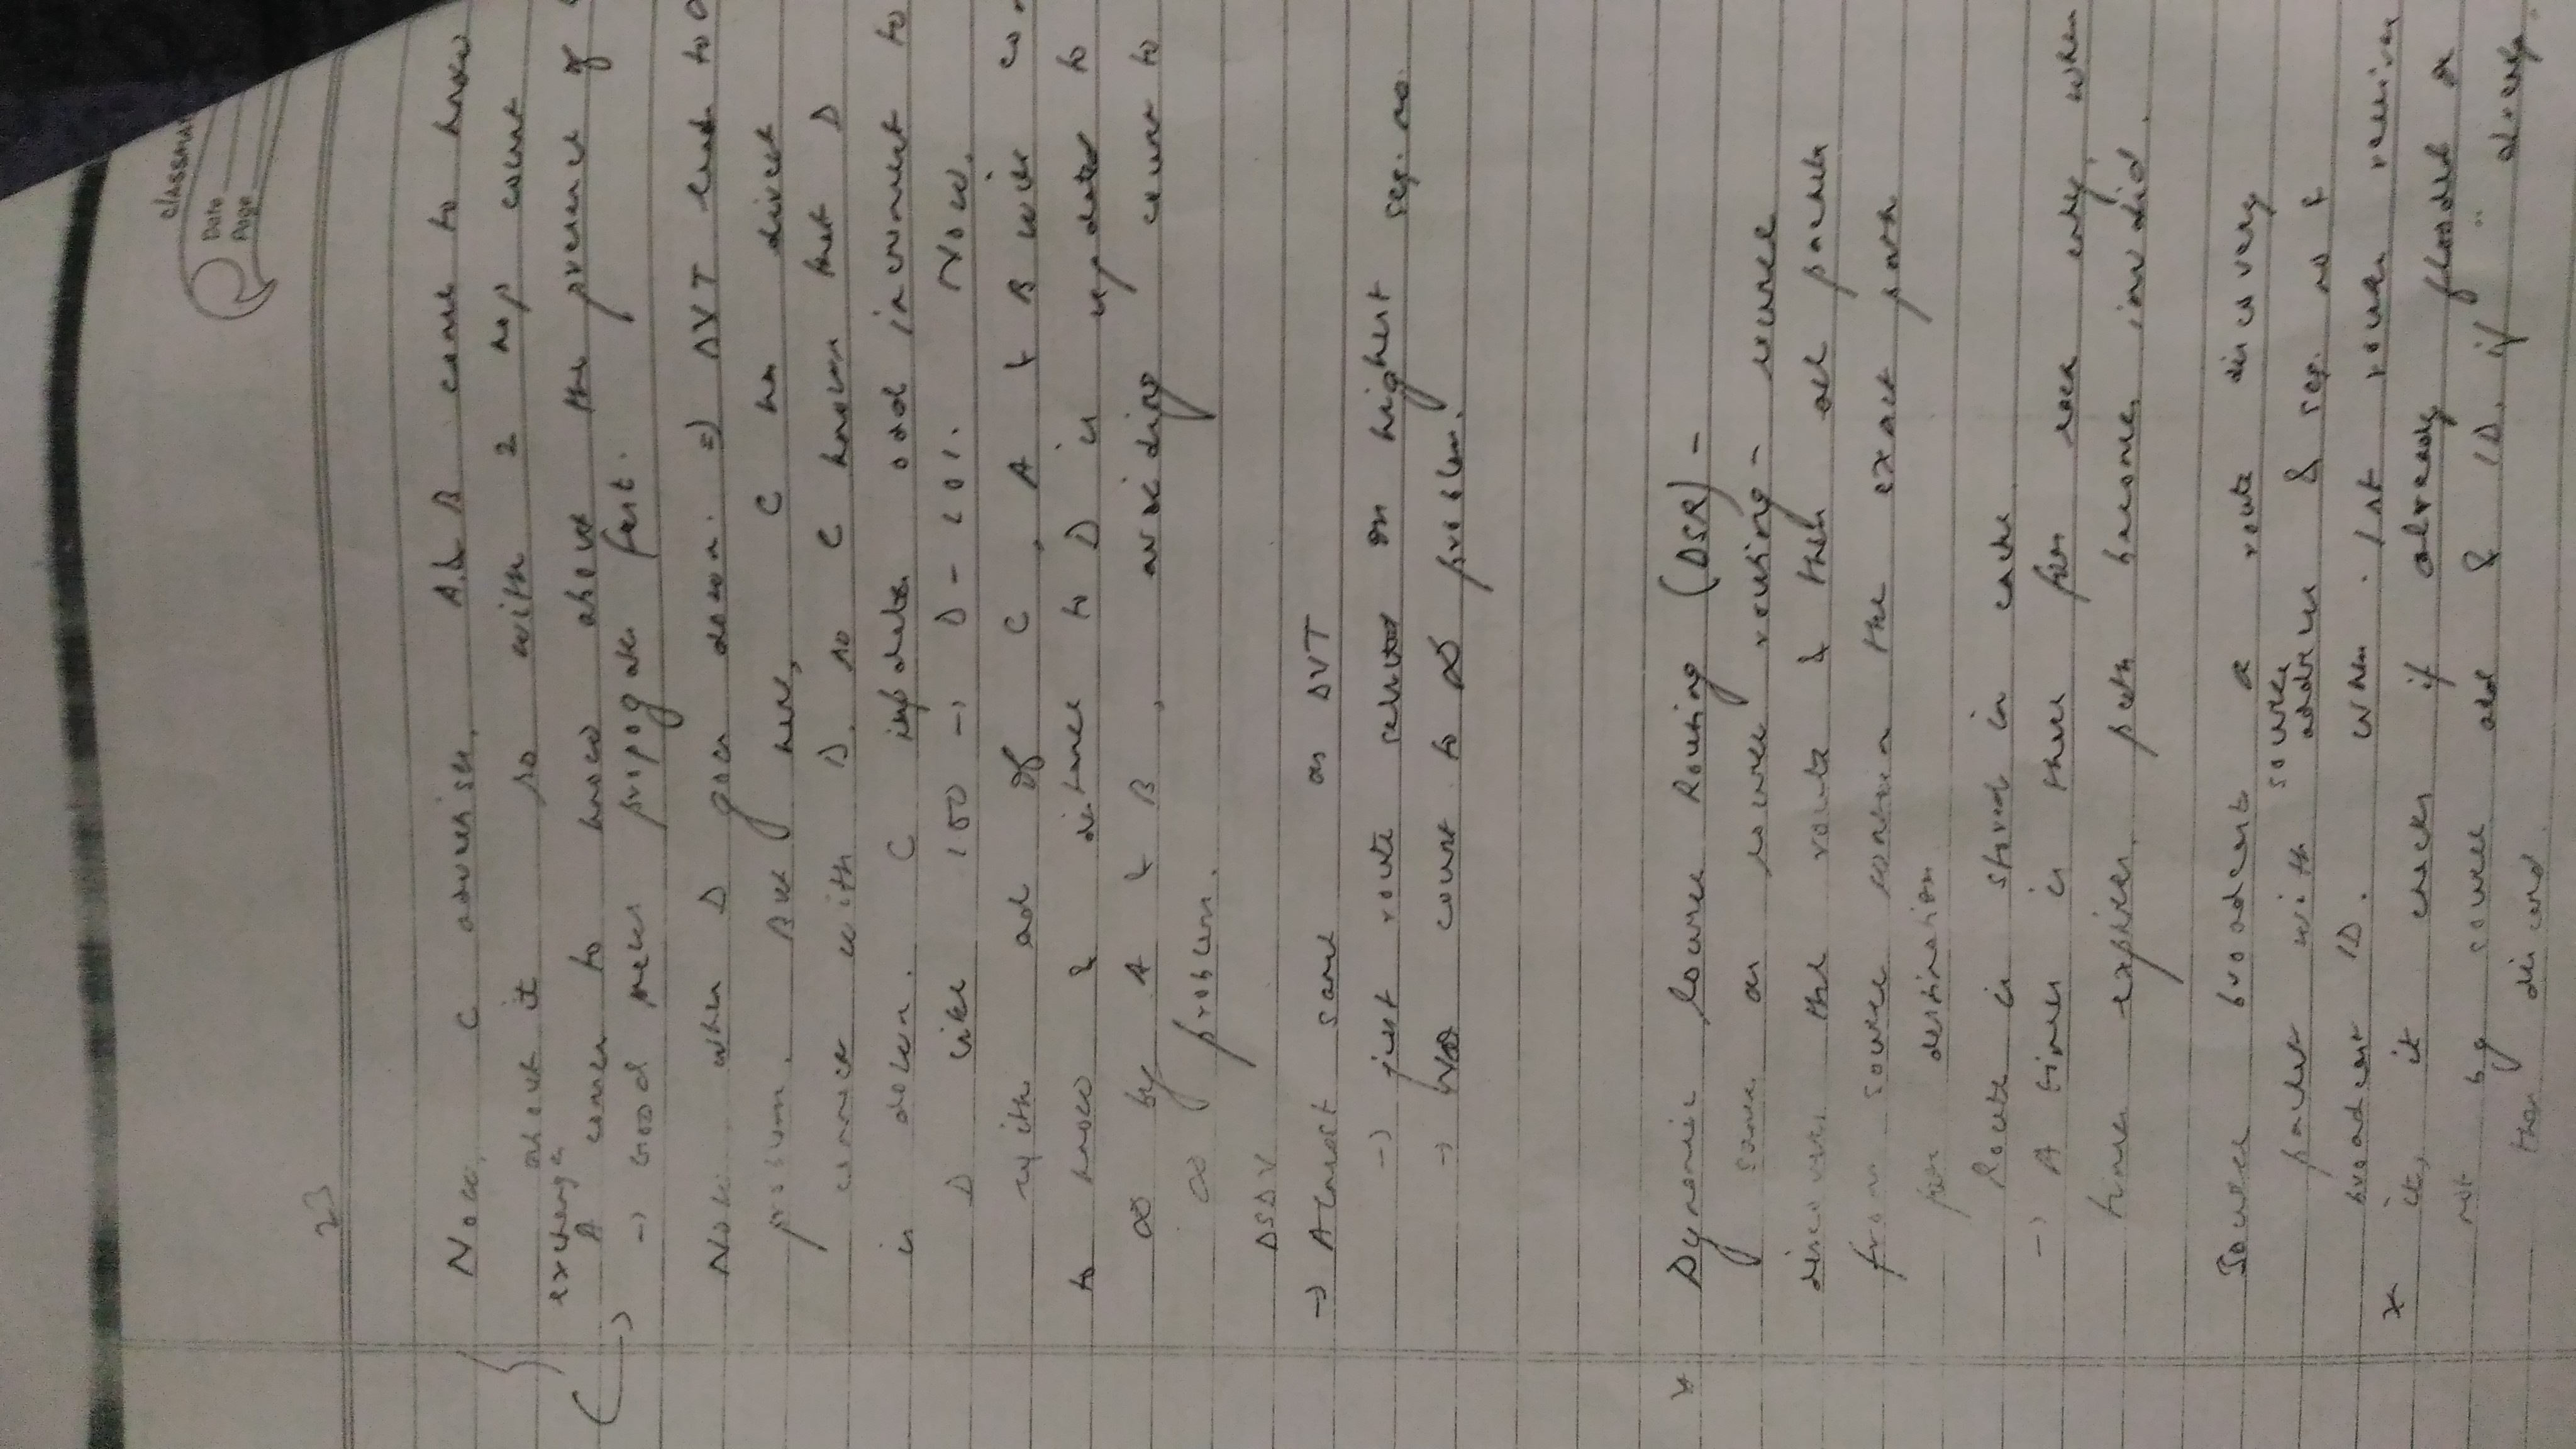 classma
Date
Page
23
Now, C advertise. A & B come to know
about it so with 2 hop count
exchange
A comes to know about the presence of
→ Good news propogates fast.
Now when D goes down. => DVT leads to
problem. But here, C has direct
connect with D. so C knows that D
is down. C updates odd increment to
D like 100 → D - 101. Now,
with ad of C, A & B will
to know & distance to D is updated to
∞ by A & B, avoiding count to
∞ problem.
DSDV
→ Almost same as DVT
→ just route selected on highest seq. no.
→ No count to ∞ problem.
* Dynamic Source Routing (DSR) -
same as source routing - source
discovers the route & then all packets
from source contain the exact path
for destination
Route is stored in cache.
→ A timer is there for each entry, when
timer expires, path becomes invalid.
Source broadcasts a route discovery
source
packet with address & seq. no &
broadcast ID. When 1st router receives
* it, it checks if already flooded or
not by source add & ID. if " already
then discard.